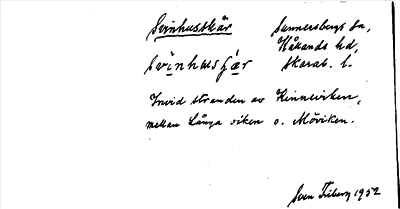 Svinhusskär Sunnersbergs sn,
Kållands hd,
Skarab. l.
Invid stranden av Kinneviken,
mellan Långa viken o. Möviken.
Sven Friberg 1952